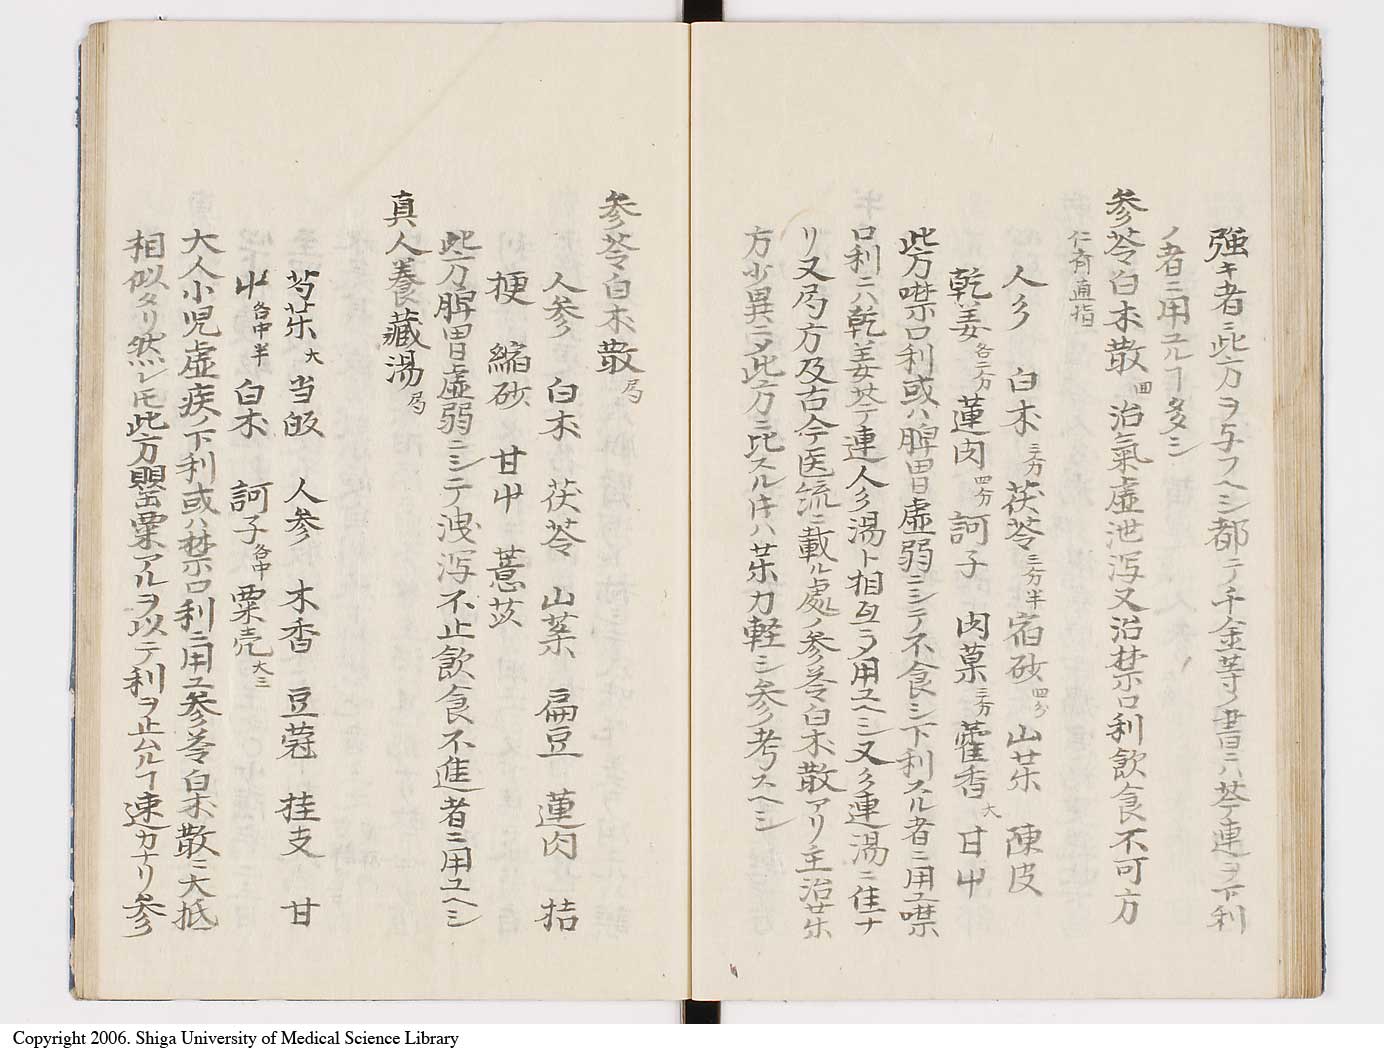 強キ者ニ此方ヲ与フヘシ都テ千金等ノ書ニハ芩連ヲ下利
ノ者ニ用ユルヿ多シ
参苓白朮散 回 治氣虚泄瀉又治禁口利飲食不可方
仁斉直指
人参 白朮三分 茯苓三分半 宿砂四分 山薬 陳皮
乾姜各二分 蓮肉四分 訶子 肉菓三分 藿香大 甘艸
此方噤口利或ハ脾胃虚弱ニシテ不食シ下利スル者ニ用ユ噤
口利ニハ乾姜芩連人参湯ト相互ヲ用ユヘシ又参連湯ニ佳ナ
リ又局方及古今医統ニ載ル處ノ参苓白朮散アリ主治薬
方少異ニ〆此方ニ比スル片ハ薬力軽シ参考スヘシ
参苓白朮散局
人参 白朮 茯苓 山薬 扁豆 蓮肉 桔
梗 縮砂 甘艸 薏苡
此方脾胃虚弱ニシテ洩瀉不止飲食不進者ニ用ユヘシ
真人養藏湯局
芍薬大 当皈 人参 木香 豆蔲 桂支 甘
艸各中半 白朮 訶子各中 粟壳大三
大人小児虚疾ノ下利或ハ禁口利ニ用ユ参苓白朮散ニ大抵
相似タリ然レ𪜈此方罌粟アルヲ以テ利ヲ止ムルヿ速カナリ参
Copyright 2006. Shiga University of Medical Science Library